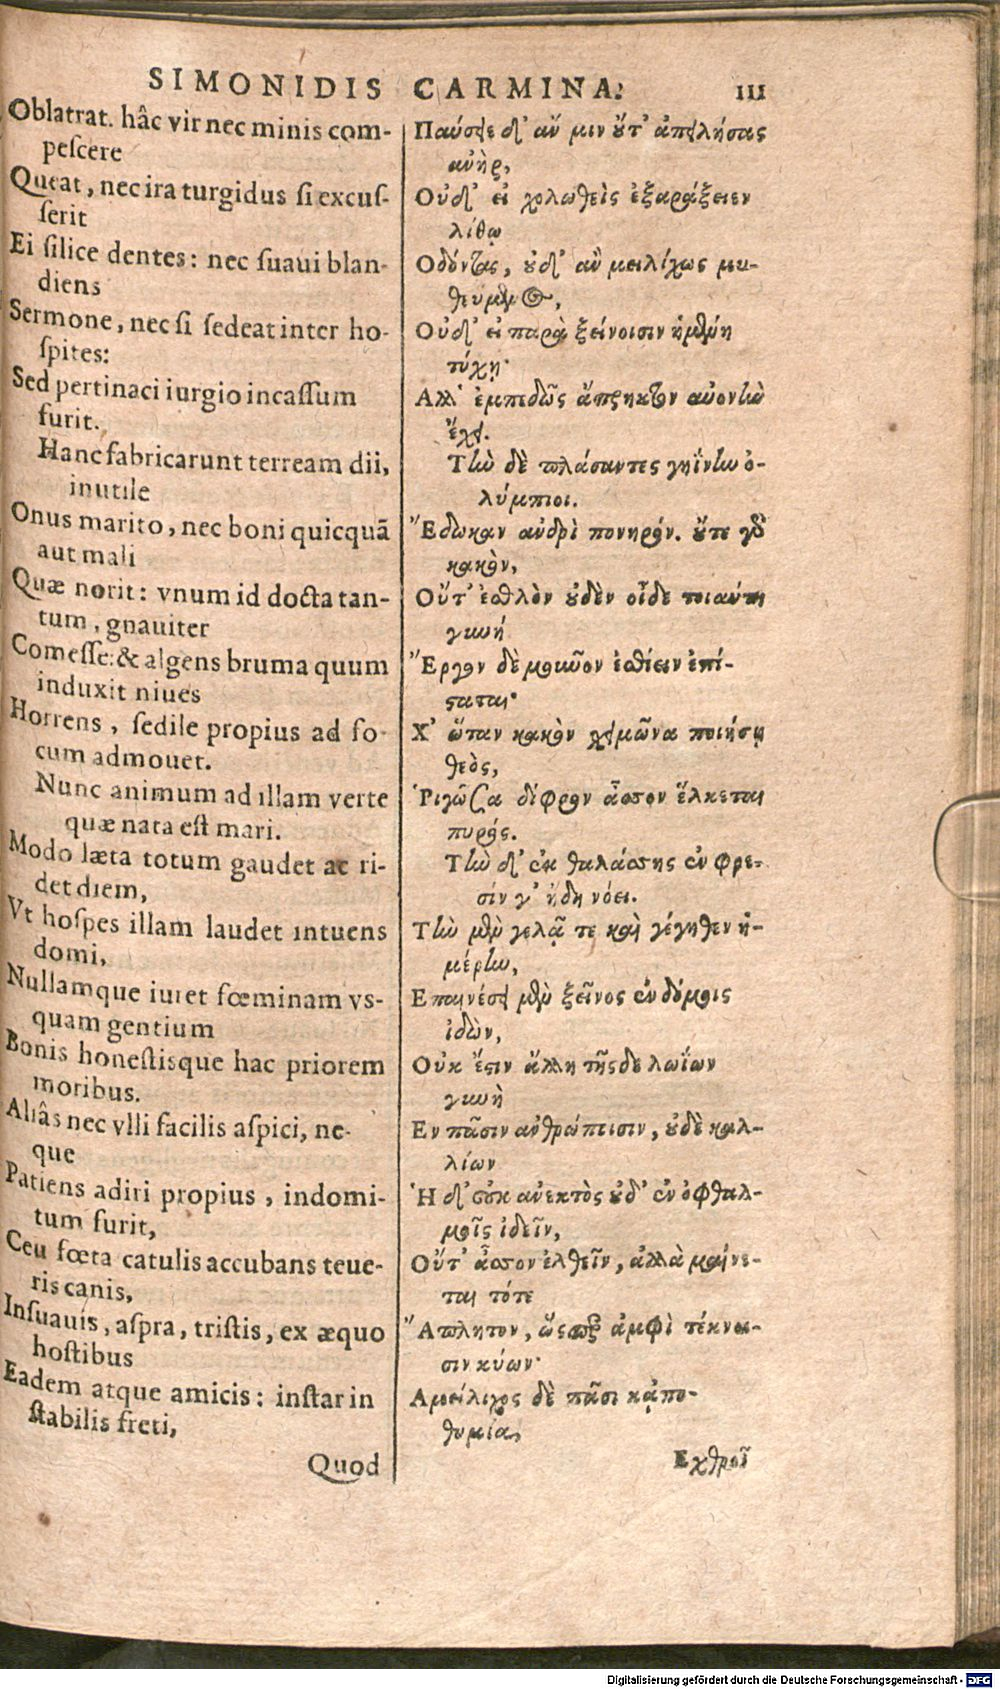 SIMONIDIS CARMINA. 111
Oblatrat. hâc vir nec minis com-
peſcere
Queat, nec ira turgidus ſi excuſ-
ſerit
Ei ſilice dentes: nec ſuaui blan-
diens
Sermone, nec ſi ſedeat inter ho-
ſpites:
Sed pertinaci iurgio incaſſum
furit.
Hanc fabricarunt terream dii,
inutile
Onus marito, nec boni quicquã
aut mali
Quæ norit: vnum id docta tan-
tum, gnauiter
Comeſſe: & algens bruma quum
induxit niues
Horrens, ſedile propius ad fo-
cum admouet.
Nunc animum ad illam verte
quæ nata eſt mari.
Modo læta totum gaudet ac ri-
det diem,
Vt hoſpes illam laudet intuens
domi,
Nullamque iuret fœminam vſ-
quam gentium
Bonis honeſtisque hac priorem
moribus.
Aliâs nec vlli facilis aſpici, ne-
que
Patiens adiri propius, indomi-
tum furit,
Ceu fœta catulis accubans teue-
ris canis,
Inſuauis, aſpra, triſtis, ex æquo
hoſtibus
Eadem atque amicis: inſtar in
ſtabilis freti,
Quod
Παύσειε δ' ἂν μιν οὔτ' ἀπειλήσας
ἀνὴρ,
Οὐδ' εἰ χολωθεὶς ἐξαράξειεν
λίθῳ
Οδόντας, οὐδ' ἂν μειλίχως μυ-
θευμενος,
Οὐδ' εἰ παρὰ ξείνοισιν ἡμένη
τύχῃ·
Αλλ' ἐμπεδῶς ἄπρηκτον αὐονὴν
ἔχει.
Τὴν δὲ πλάσαντες γηΐνην ὀ-
λύμπιοι.
Ἔδωκαν ἀνδρὶ πονηρόν. οὔτε γὰρ
κακὸν,
Οὔτ' ἐσθλὸν οὐδὲν οἶδε τοιαύτη
γυνή
Ἔργον δὲ μοῦνον ἐσθίειν ἐπί-
σταται·
Χ' ὥταν κακὸν χειμῶνα ποιήσῃ
θεὸς,
Ῥιγῶσα δίφρον ἆσσον ἕλκεται
πυρός.
Τὴν δ' ἐκ θαλάσσης ἐν φρε-
σίν γ' ἤδη νόει.
Τὴν μὲν γελᾷ τε καὶ γέγηθεν ἡ-
μέρην,
Επαινέσει μὲν ξεῖνος ἐν δόμοις
ἰδὼν,
Οὐκ ἔστιν ἄλλη τῆσδε λωΐων
γυνὴ
Εν πᾶσιν ἀνθρώποισιν, οὐδὲ καλ-
λίων
Ἡ δ' οὐκ ἀνεκτὸς οὐδ' ἐν ὀφθαλ-
μοῖς ἰδεῖν,
Οὔτ' ἆσσον ἐλθεῖν, ἀλλὰ μαίνε-
ται τότε
Ἄπλητον, ὥσπερ ἀμφὶ τέκνοι-
σιν κύων·
Αμείλιχος δὲ πᾶσι κᾀπο-
θυμία,
Εχθροῖ
Digitalisierung gefördert durch die Deutsche Forschungsgemeinschaft - DFG